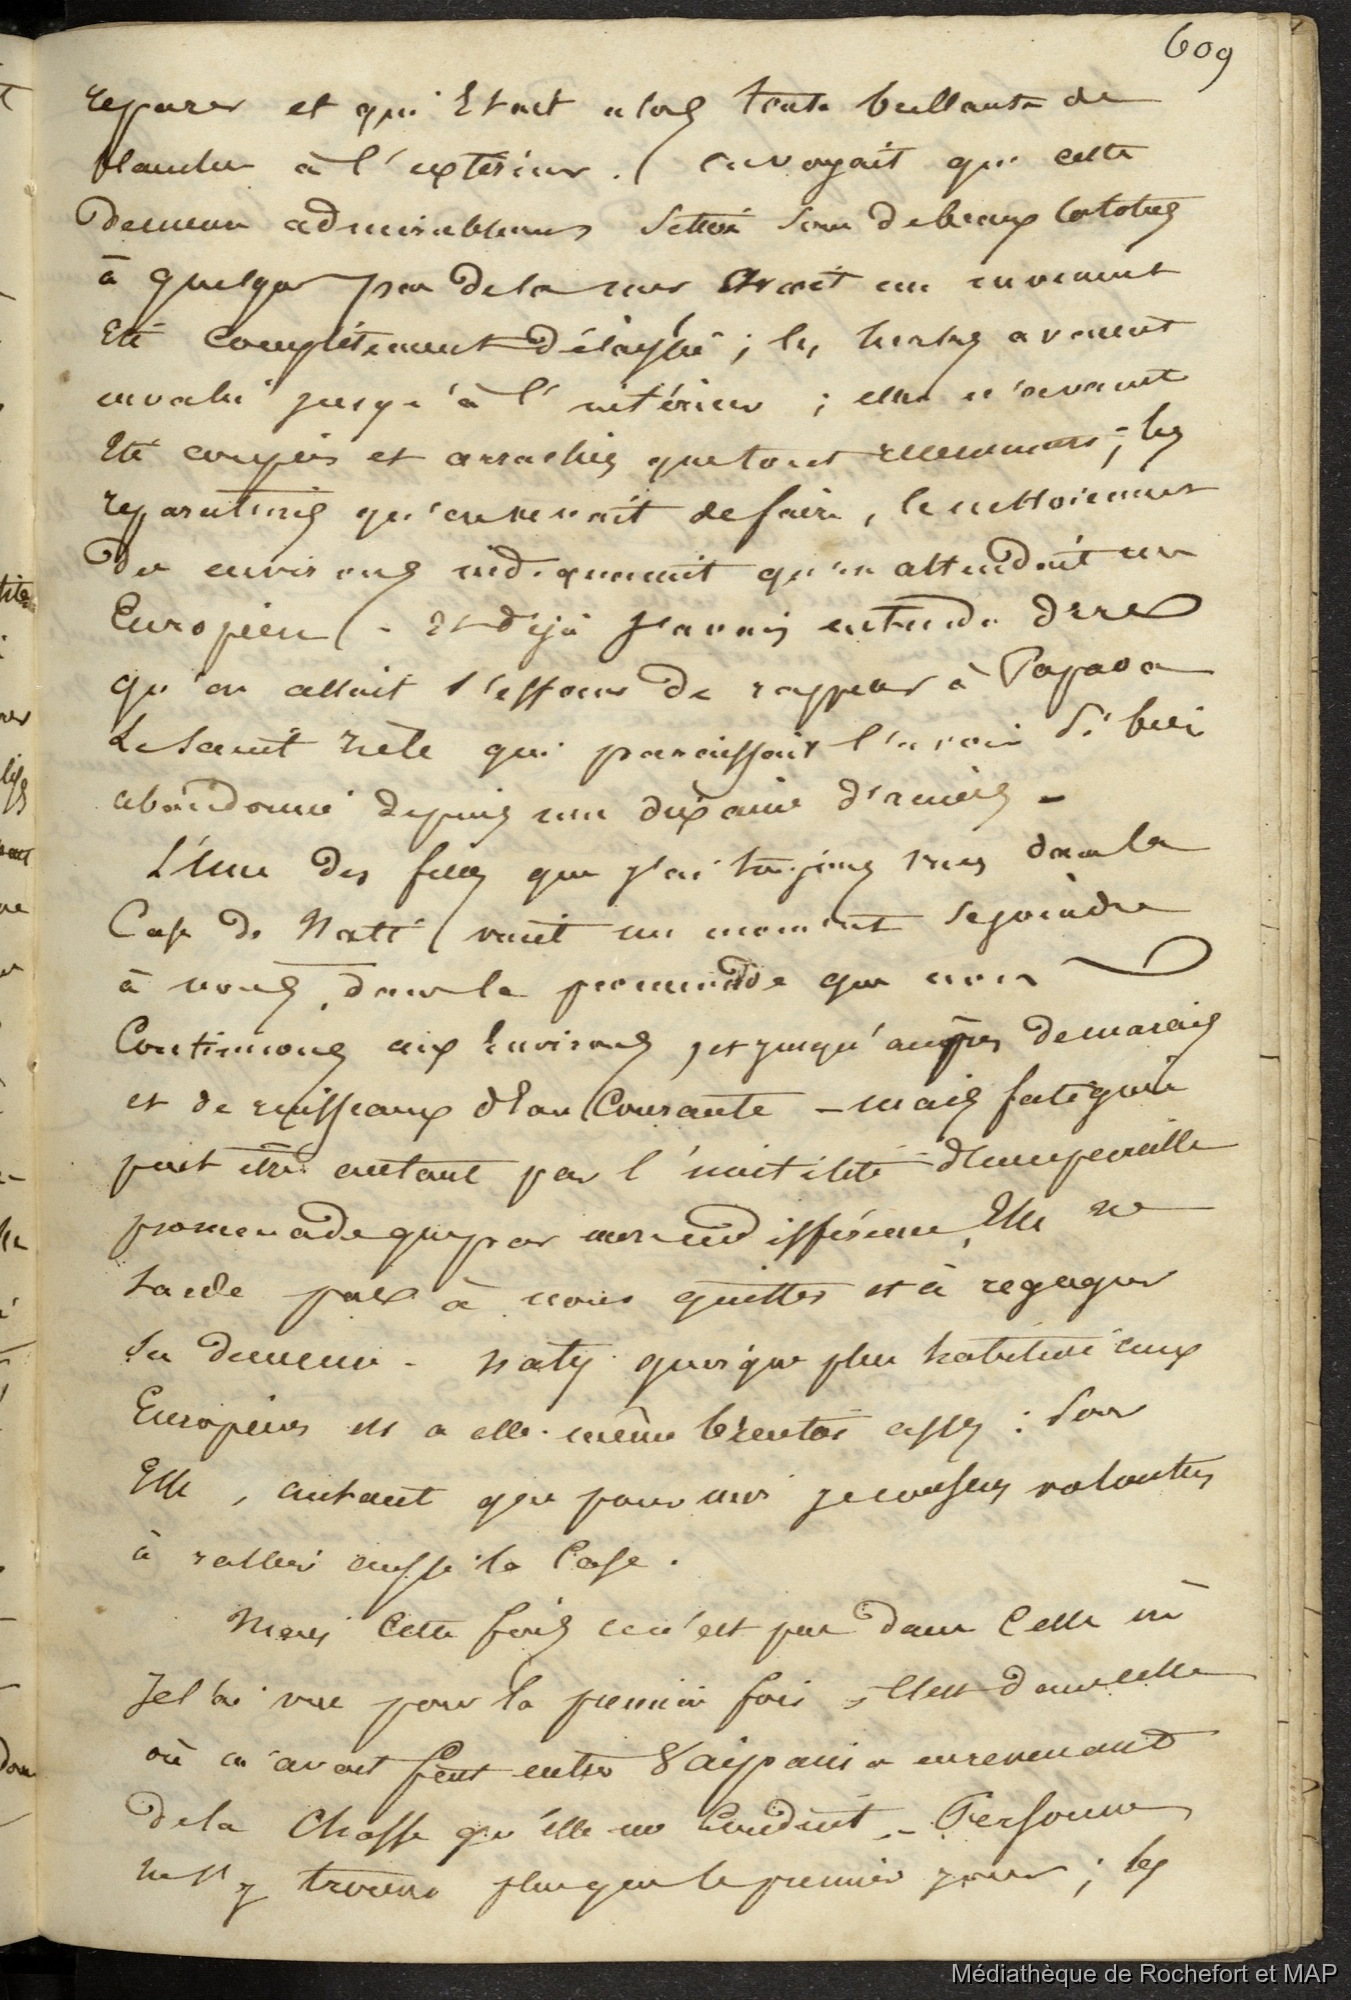 609
reparer et qui était alors toute brillante de
blancheur à l'extérieur. On voyait que cette
demeure admirablement située sous de beaux cocotiers
à quelques pas de la mer avait un moment
été complétement délaissée ; les herbes avaient
envahi jusqu'à l'intérieur ; elles n'avaient
été coupées et arrachées que tout recemment ; les
reparations qu'on venait de faire, le nettoiement
des environs indiquaient qu'on attendait un
Européen. - Et déjà j'avais entendu dire
qu'on allait s'efforcer de rappeler à Papara
qui paraissait l'avoir si bien
abandonné depuis une dixaine d'années -
L'une des filles que j'ai toujours vues dans la
Case de Nati vient un moment se joindre
à nous, dans la promenade que nous
Continuons aux environs, et jusqu'auprès de marais
et de ruisseaux d'Eau Courante - mais fatiguée
peut être autant par l'inutilité d'une pareille
promenade que par mon indifférence, Elle ne
tarde pas à nous quitter et à regagner
sa demeure - Naty quoique plus habituée aux
Européens en a elle-même bientôt assez : Pour
Elle, autant que pour moi je consens volontiers
à rallier aussi la Case.
Mais Cette fois ce n'est pas dans Celle où
Je l'ai vue pour la première fois, C'est dans celle
où m'avait fait entrer en revenant
de la Chasse qu'elle me Conduit - Personne
ne s'y trouve plus que le premier jour ; les
Médiathèque de Rochefort et MAP